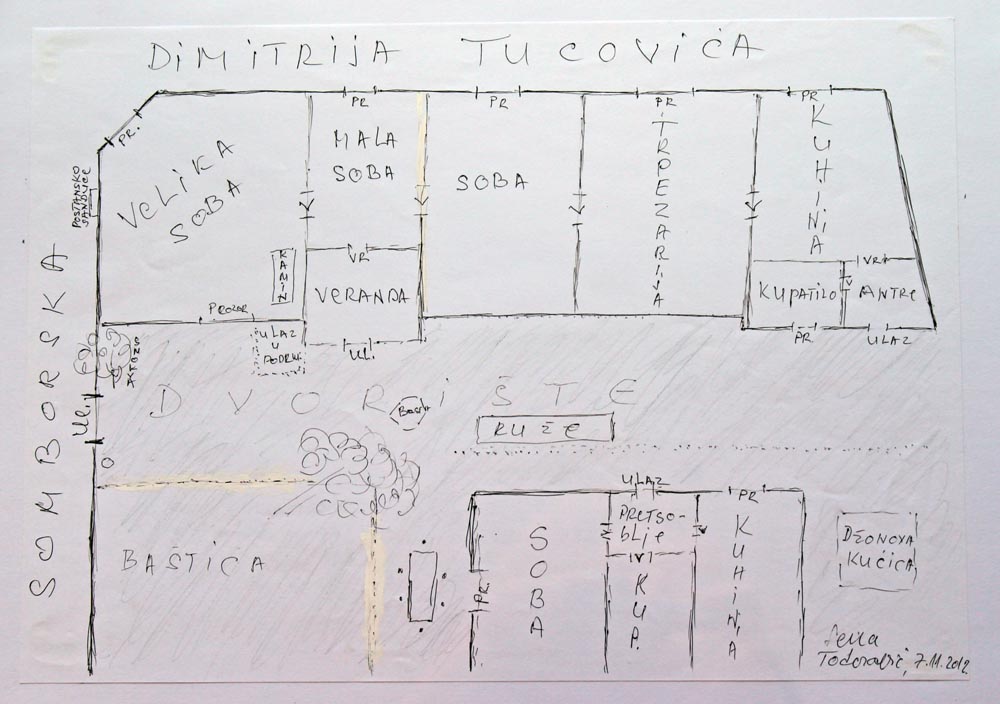 DIMITRIJA TUCOVIĆA
PR.
PR
PR
PR
PR
VELIKA
SOBA
MALA
SOBA
SOBA
TRPEZARIJA
KUHINJA
POŠTANSKO
SANDUČE
SOMBORSKA
KAMIN
VR
VERANDA
KUPATILO
VR
V
ANTRE
PROZOR
ULAZ
U
PODRUM
UL.
PR.
ULAZ
UL.
DVORIŠTE
RUŽE
BAŠTICA
ULAZ
PR
PR
SOBA
PRETSO-
BLJE
V
KUP.
KUHINJA
KUĆICA
7.11.2012.